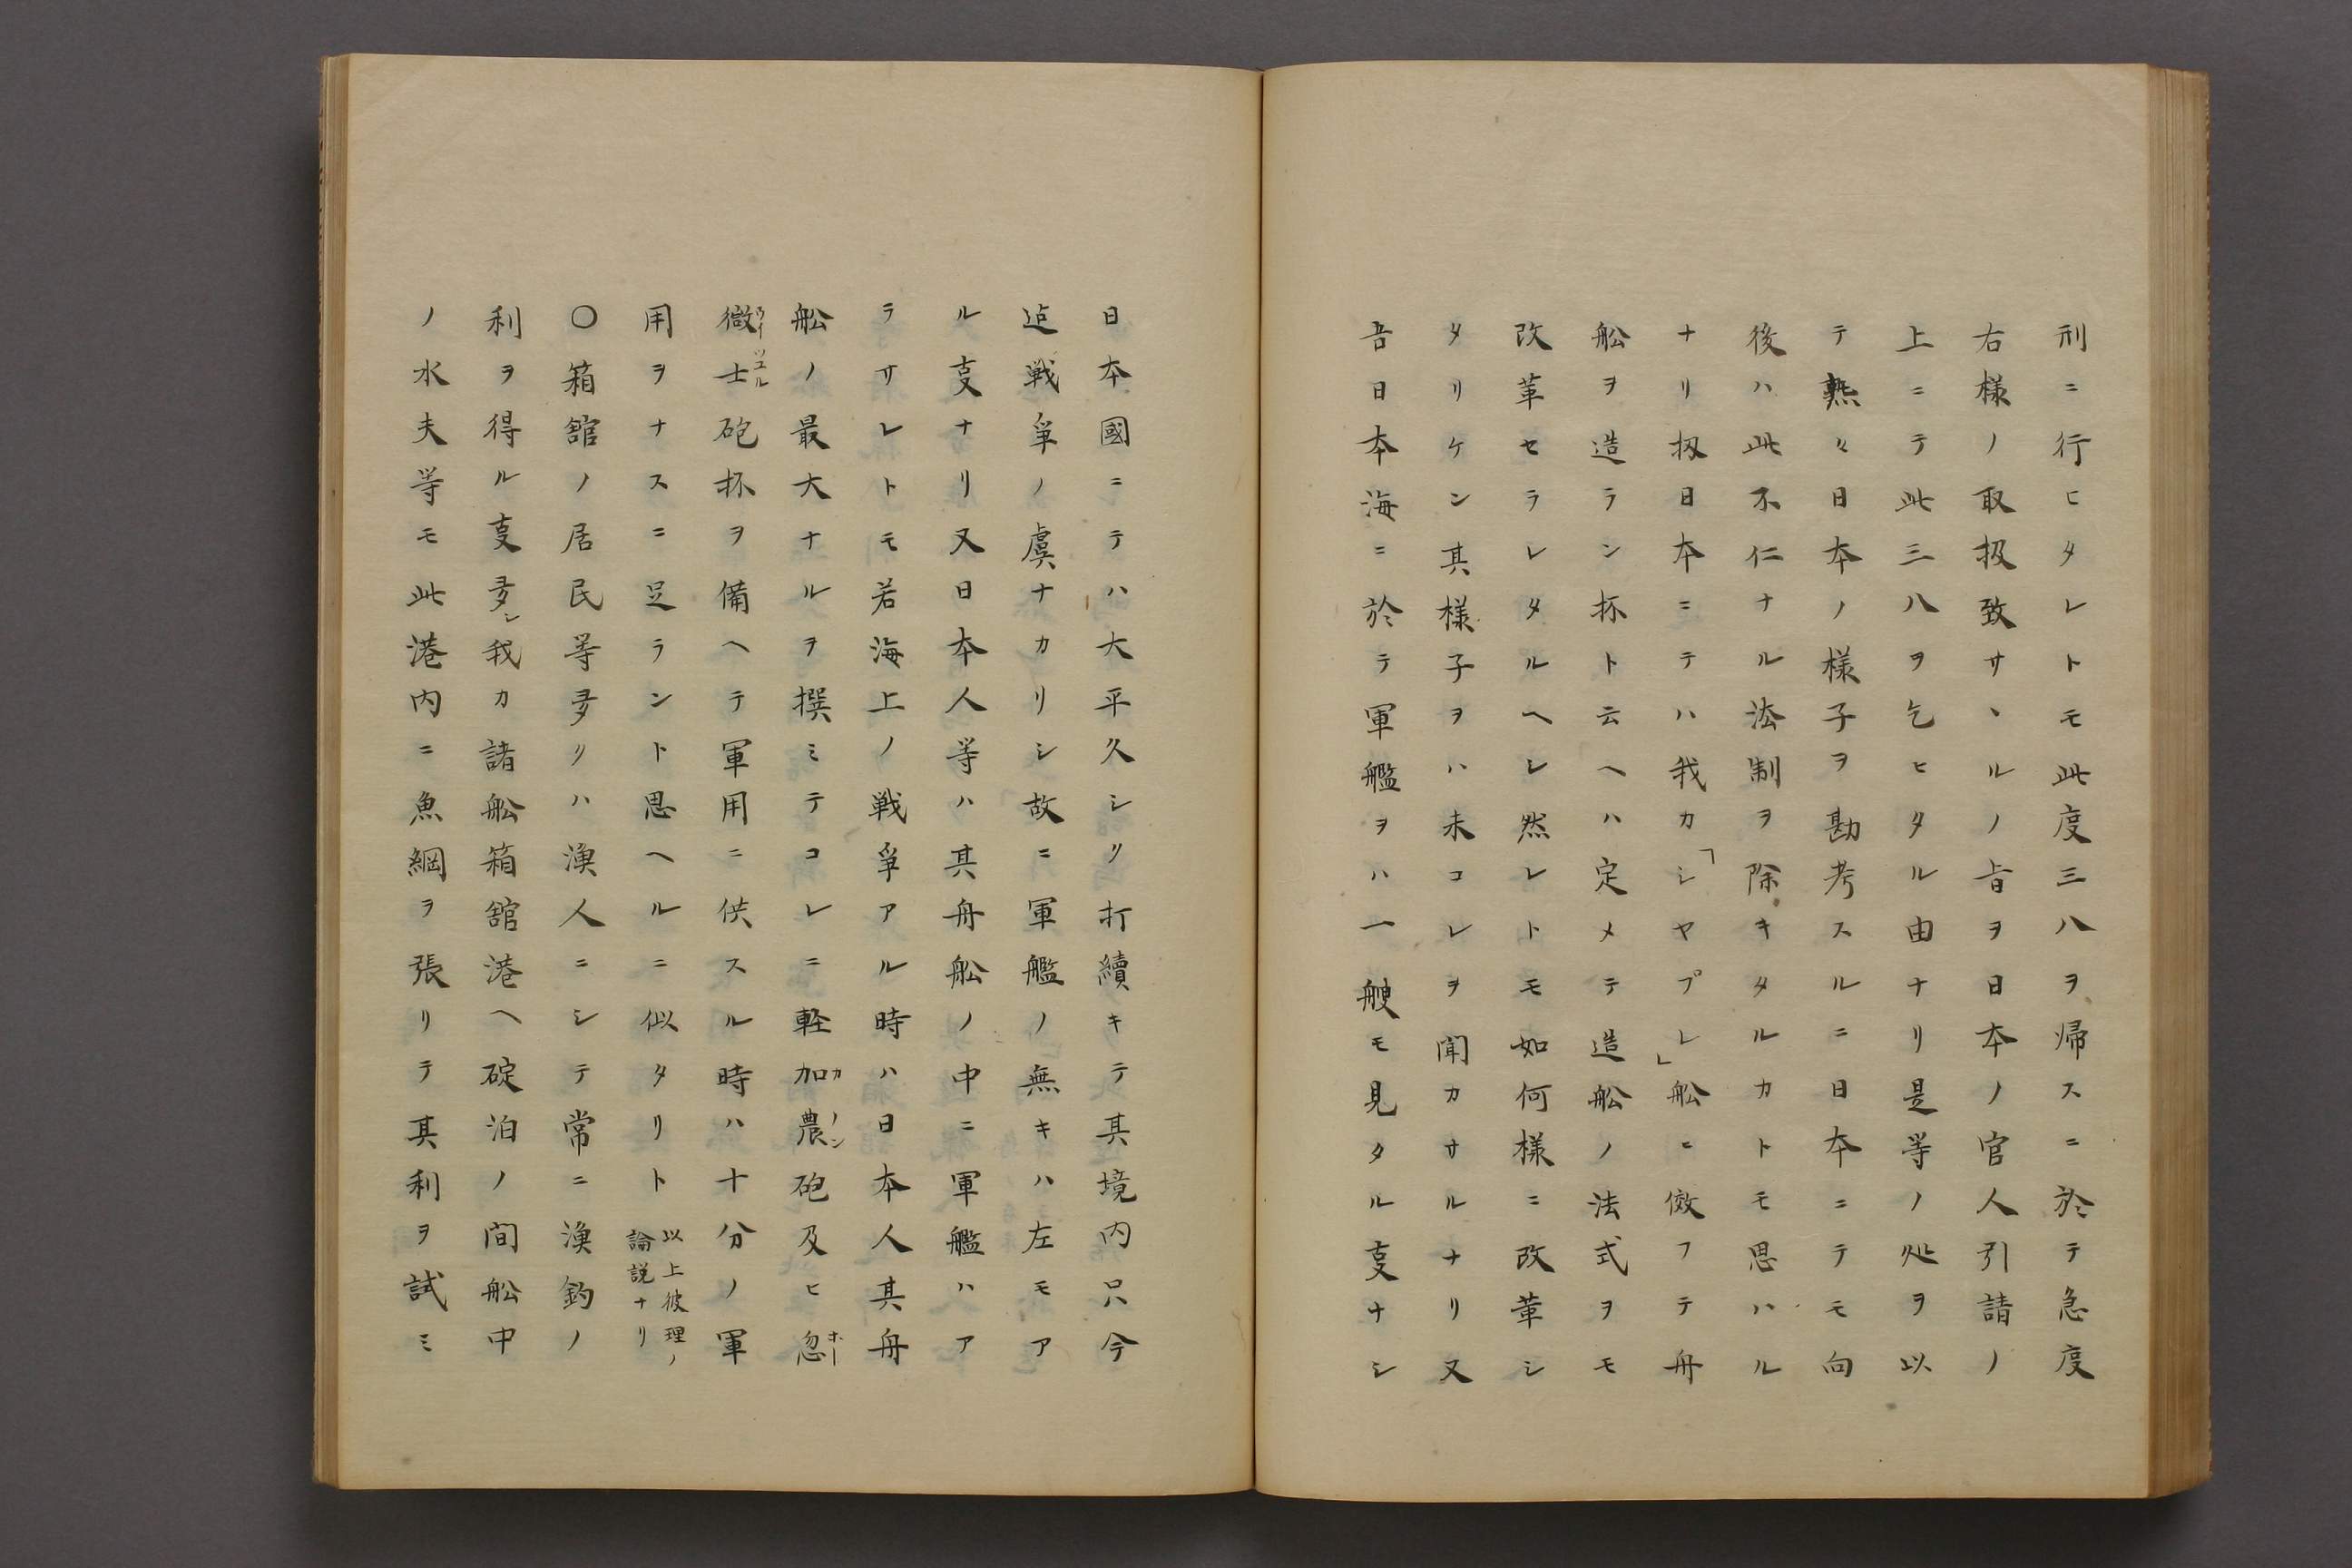 刑ニ行ヒタレトモ此度三八ヲ帰スニ於テ急度
右様ノ取扱致サヽルノ旨ヲ日本ノ官人引請ノ
上ニテ此三八ヲ乞ヒタル由ナリ是等ノ処ヲ以
テ熟々日本ノ様子ヲ勘考スルニ日本ニテモ向
後ハ此不仁ナル法制ヲ除キタルカトモ思ハル
ナリ扨日本ニテハ我カ「シヤプレ」船ニ倣フテ舟
舩ヲ造ラン抔ト云ヘハ定メテ造舩ノ法式ヲモ
改革セラレタルヘシ然レトモ如何様ニ改革シ
タリケン其様子ヲハ未コレヲ聞カサルナリ又
吾日本海ニ於テ軍艦ヲハ一艘モ見タル叓ナシ
日本國ニテハ大平久シリ打續キテ其境内只今
迠戦爭ノ虞ナカリシ故ニ軍艦ノ無キハ左モア
ル叓ナリ又日本人等ハ其舟舩ノ中ニ軍艦ハア
ラサレトモ若海上ノ戦爭アル時ハ日本人其舟
舩ノ最大ナルヲ撰ミテコレニ軽加農砲及ヒ忽
微士砲抔ヲ備ヘテ軍用ニ供スル時ハ十分ノ軍
用ヲナスニ足ラント思ヘルニ似タリト以上彼理ノ論説ナリ
〇箱舘ノ居民等多リハ漁人ニシテ常ニ漁釣ノ
利ヲ得ル叓多シ我カ諸舩箱舘港ヘ碇泊ノ間舩中
ノ水夫等モ此港内ニ魚綱ヲ張リテ其利ヲ試ミ